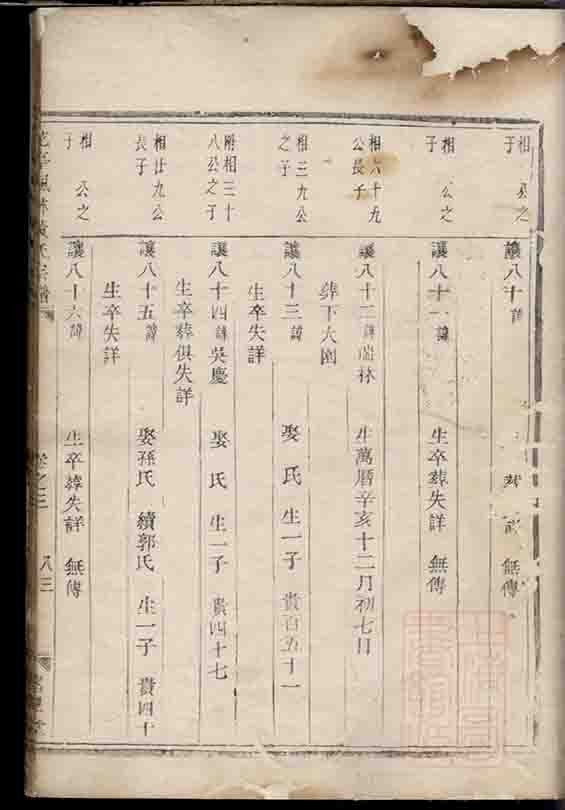 相 公之子
讓八十諱
無傳
相 公之子
讓八十一諱
生卒葬失詳 無傳
相六十九公長子
讓八十二諱瑞林
生萬曆辛亥十二月初七日
葬下大園
相三九公之子
讓八十三諱
娶 氏 生一子 貴百五十一
生卒失詳
附相三十八公之子
讓八十四諱吳慶
娶 氏 生一子 貴四十七
生卒葬俱失詳
相廿九公長子
讓八十五諱
娶孫氏 續郭氏 生一子 貴四十
生卒失詳
相 公之子
讓八十六諱
生卒葬失詳 無傳
卷之三
八三